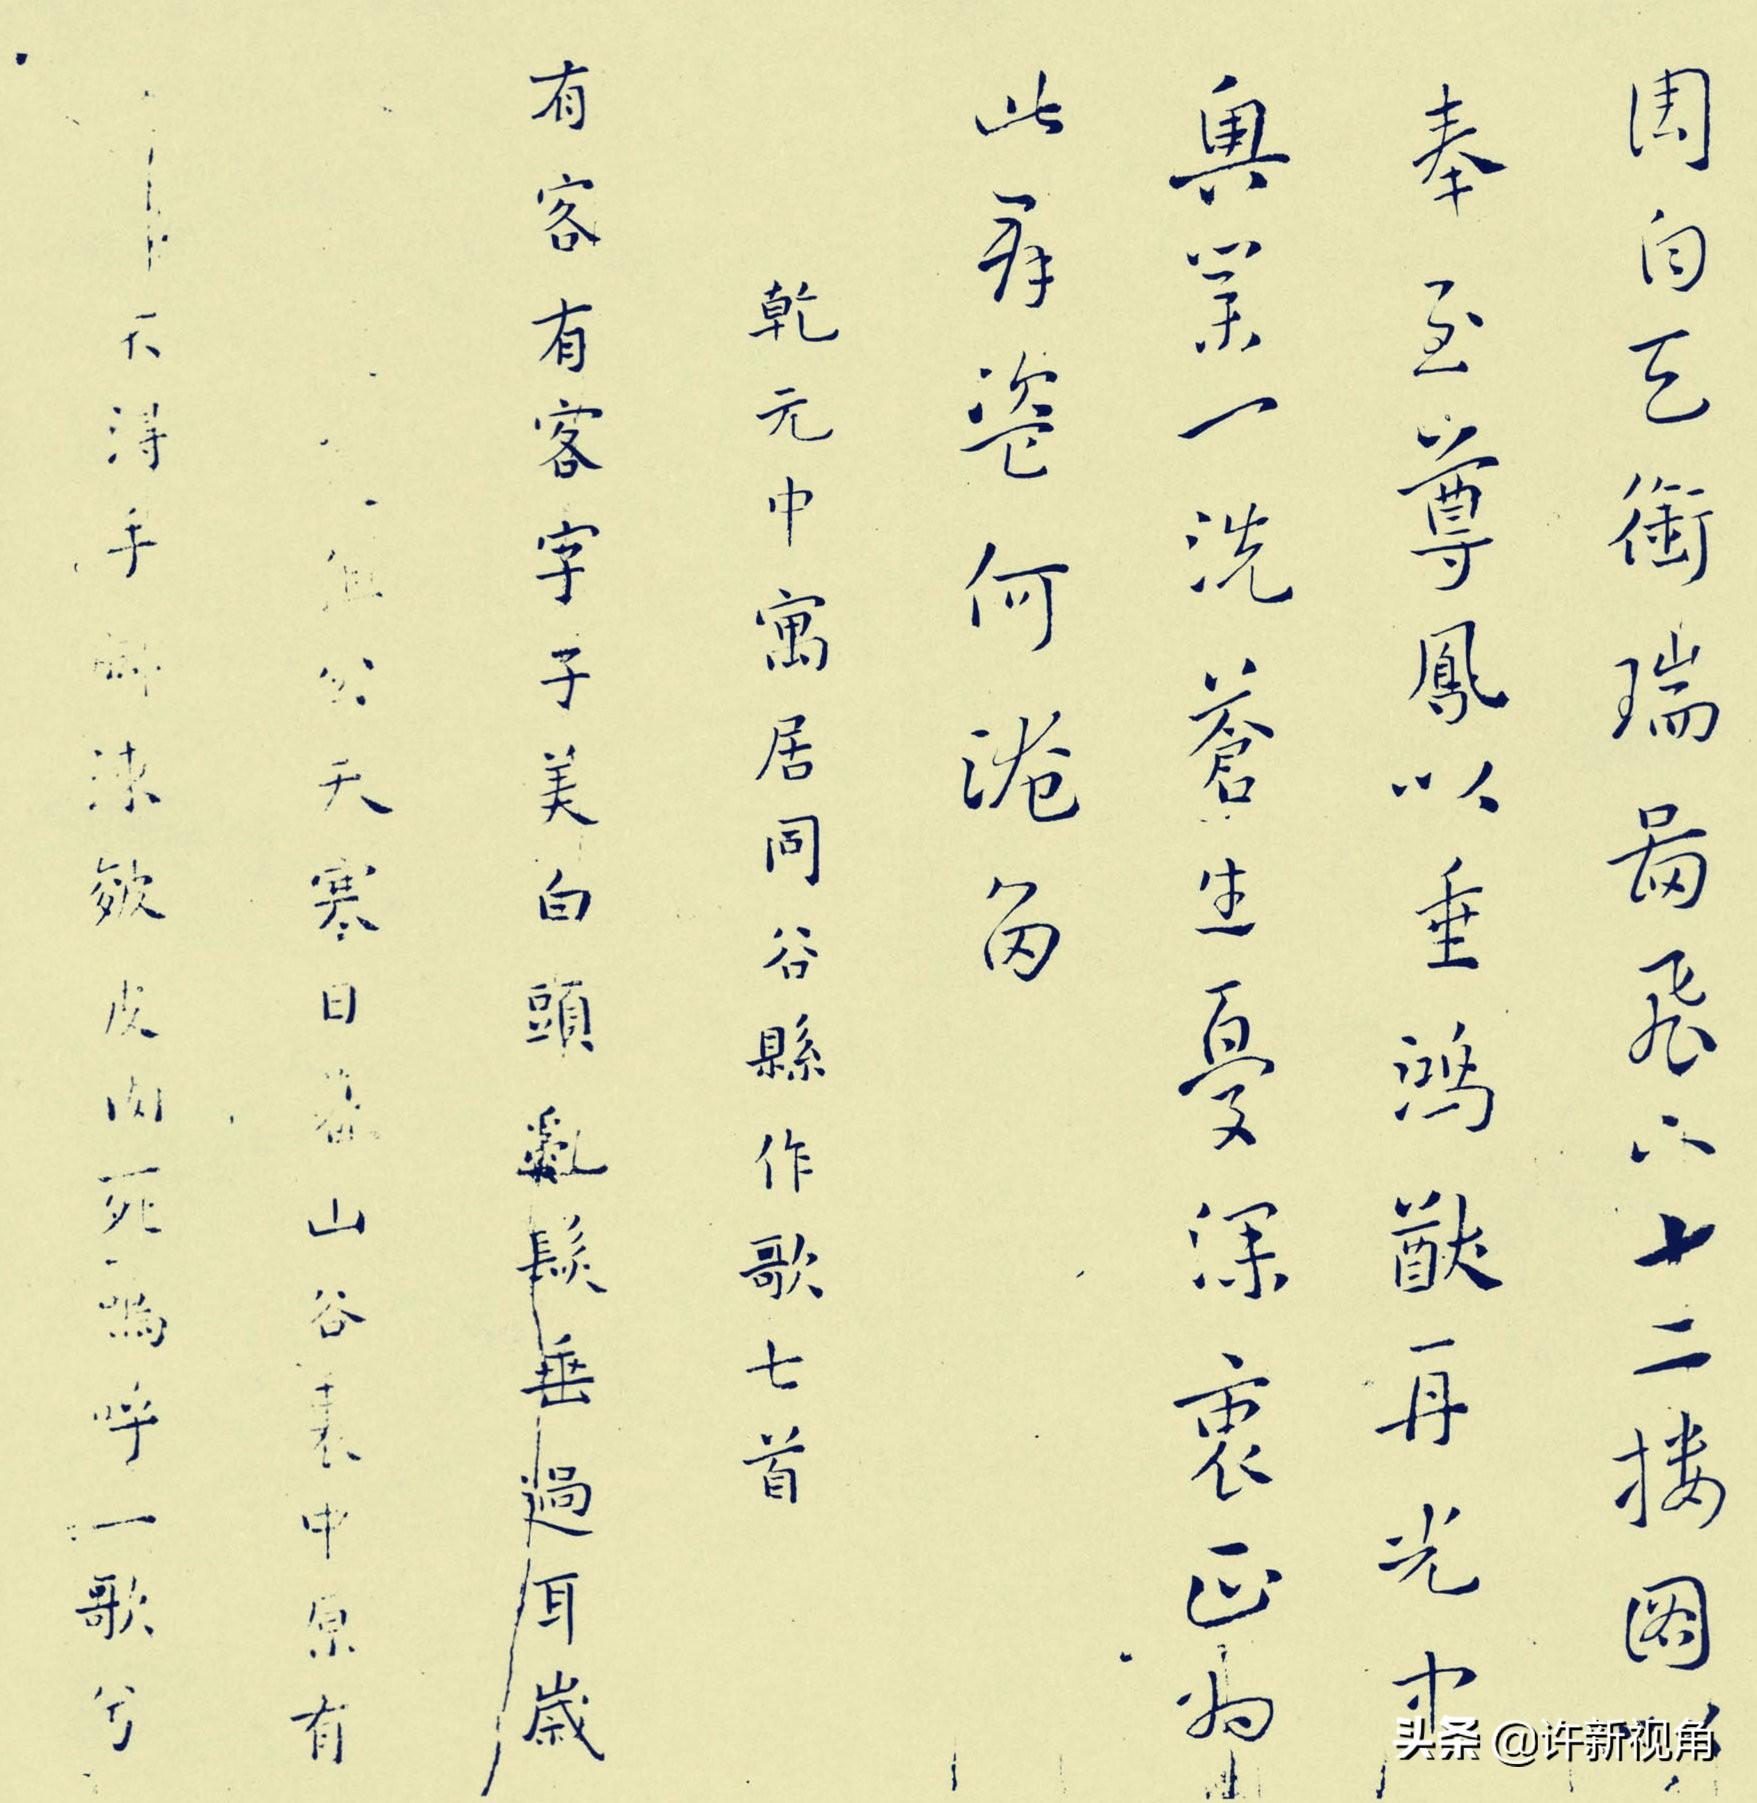 周自天銜瑞啚飛下十二楼图以
奉至尊鳳以垂鴻猷再光中
興業一洗蒼生憂深衷正为
此群盗何淹留
乾元中寓居同谷縣作歌七首
有客有客字子美白頭亂髮垂過耳歲
公天寒日暮山谷裏中原有
不得手凍皴皮肉死嗚呼一歌兮
头条 @许新视角